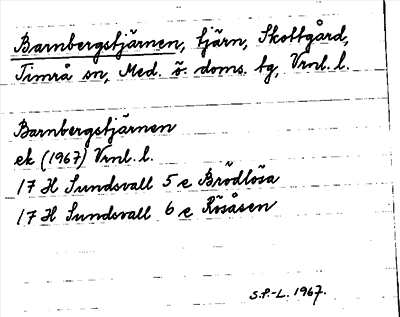 Barnbergstjärnen, tjärn, Skottgård,
Timrå sn, Med. ö. doms. tg, Vrnl. l.
Barnbergstjärnen
ek (1967) Vrnl. l.
17 H Sundsvall 5 e Brödlösa
17 H Sundsvall 6 e Rösåsen
S.P.-L. 1967.